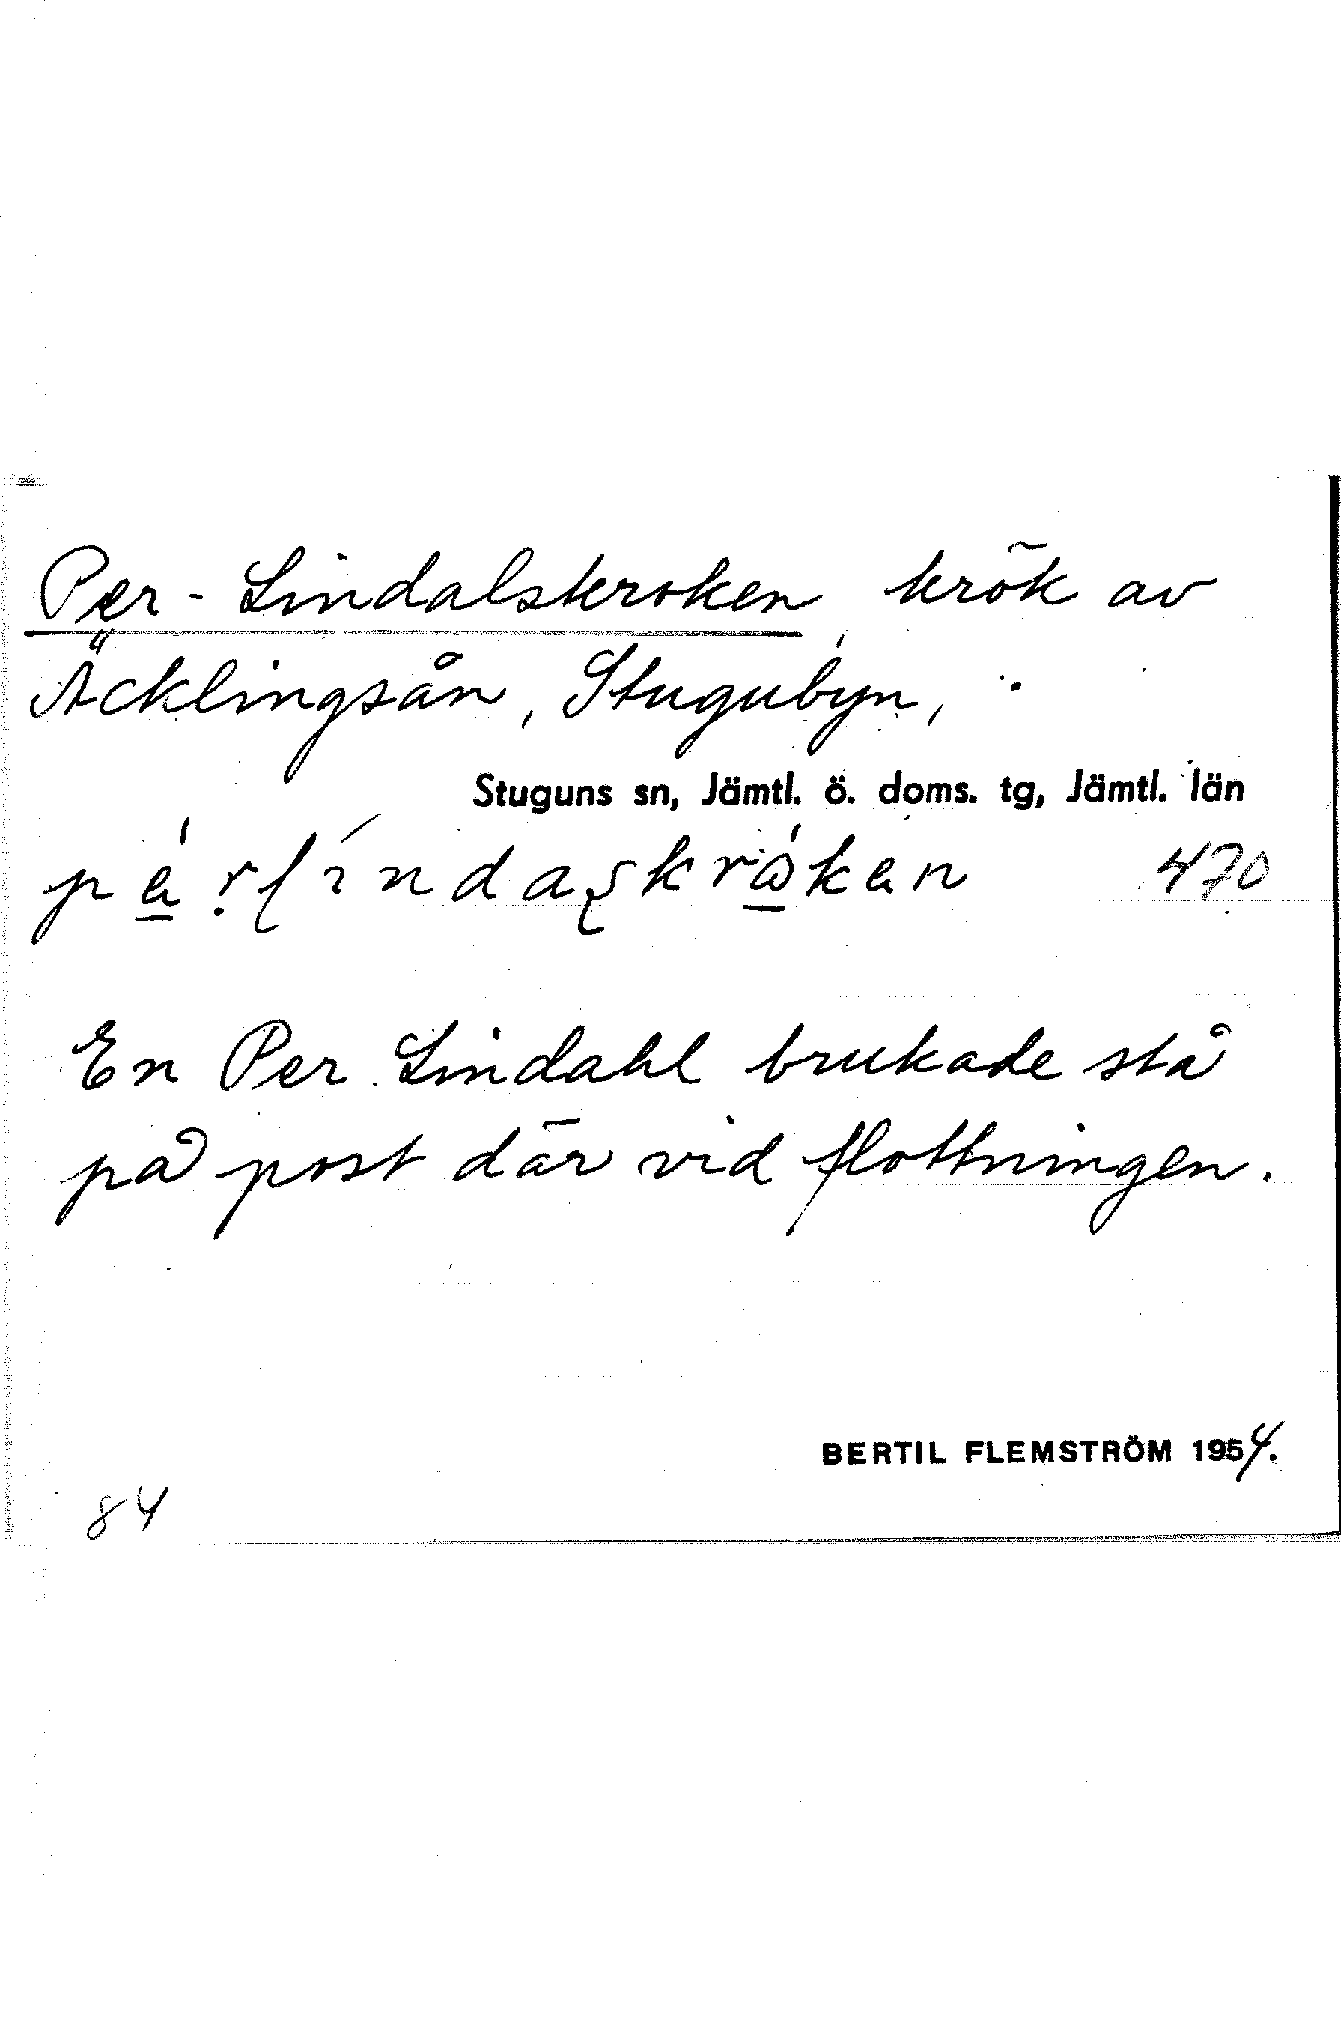 Per-Lindalskroken, krök av
Äcklingsån, Stugubyn,
Stuguns sn, Jämtl. ö. doms. tg, Jämtl. län
470
En Per Lindahl brukade stå
på post där vid flottningen.
BERTIL FLEMSTRÖM 1954.
84